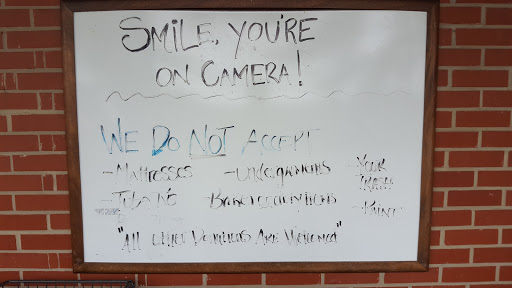 SMILE, YOU'RE
ON CAMERA!
WE DO NOT ACCEPT
- Mattresses - Undergarments - YOUR TRASH
- Tube TVs - PAINT
"ALL OTHER DONATIONS ARE WELCOMED"